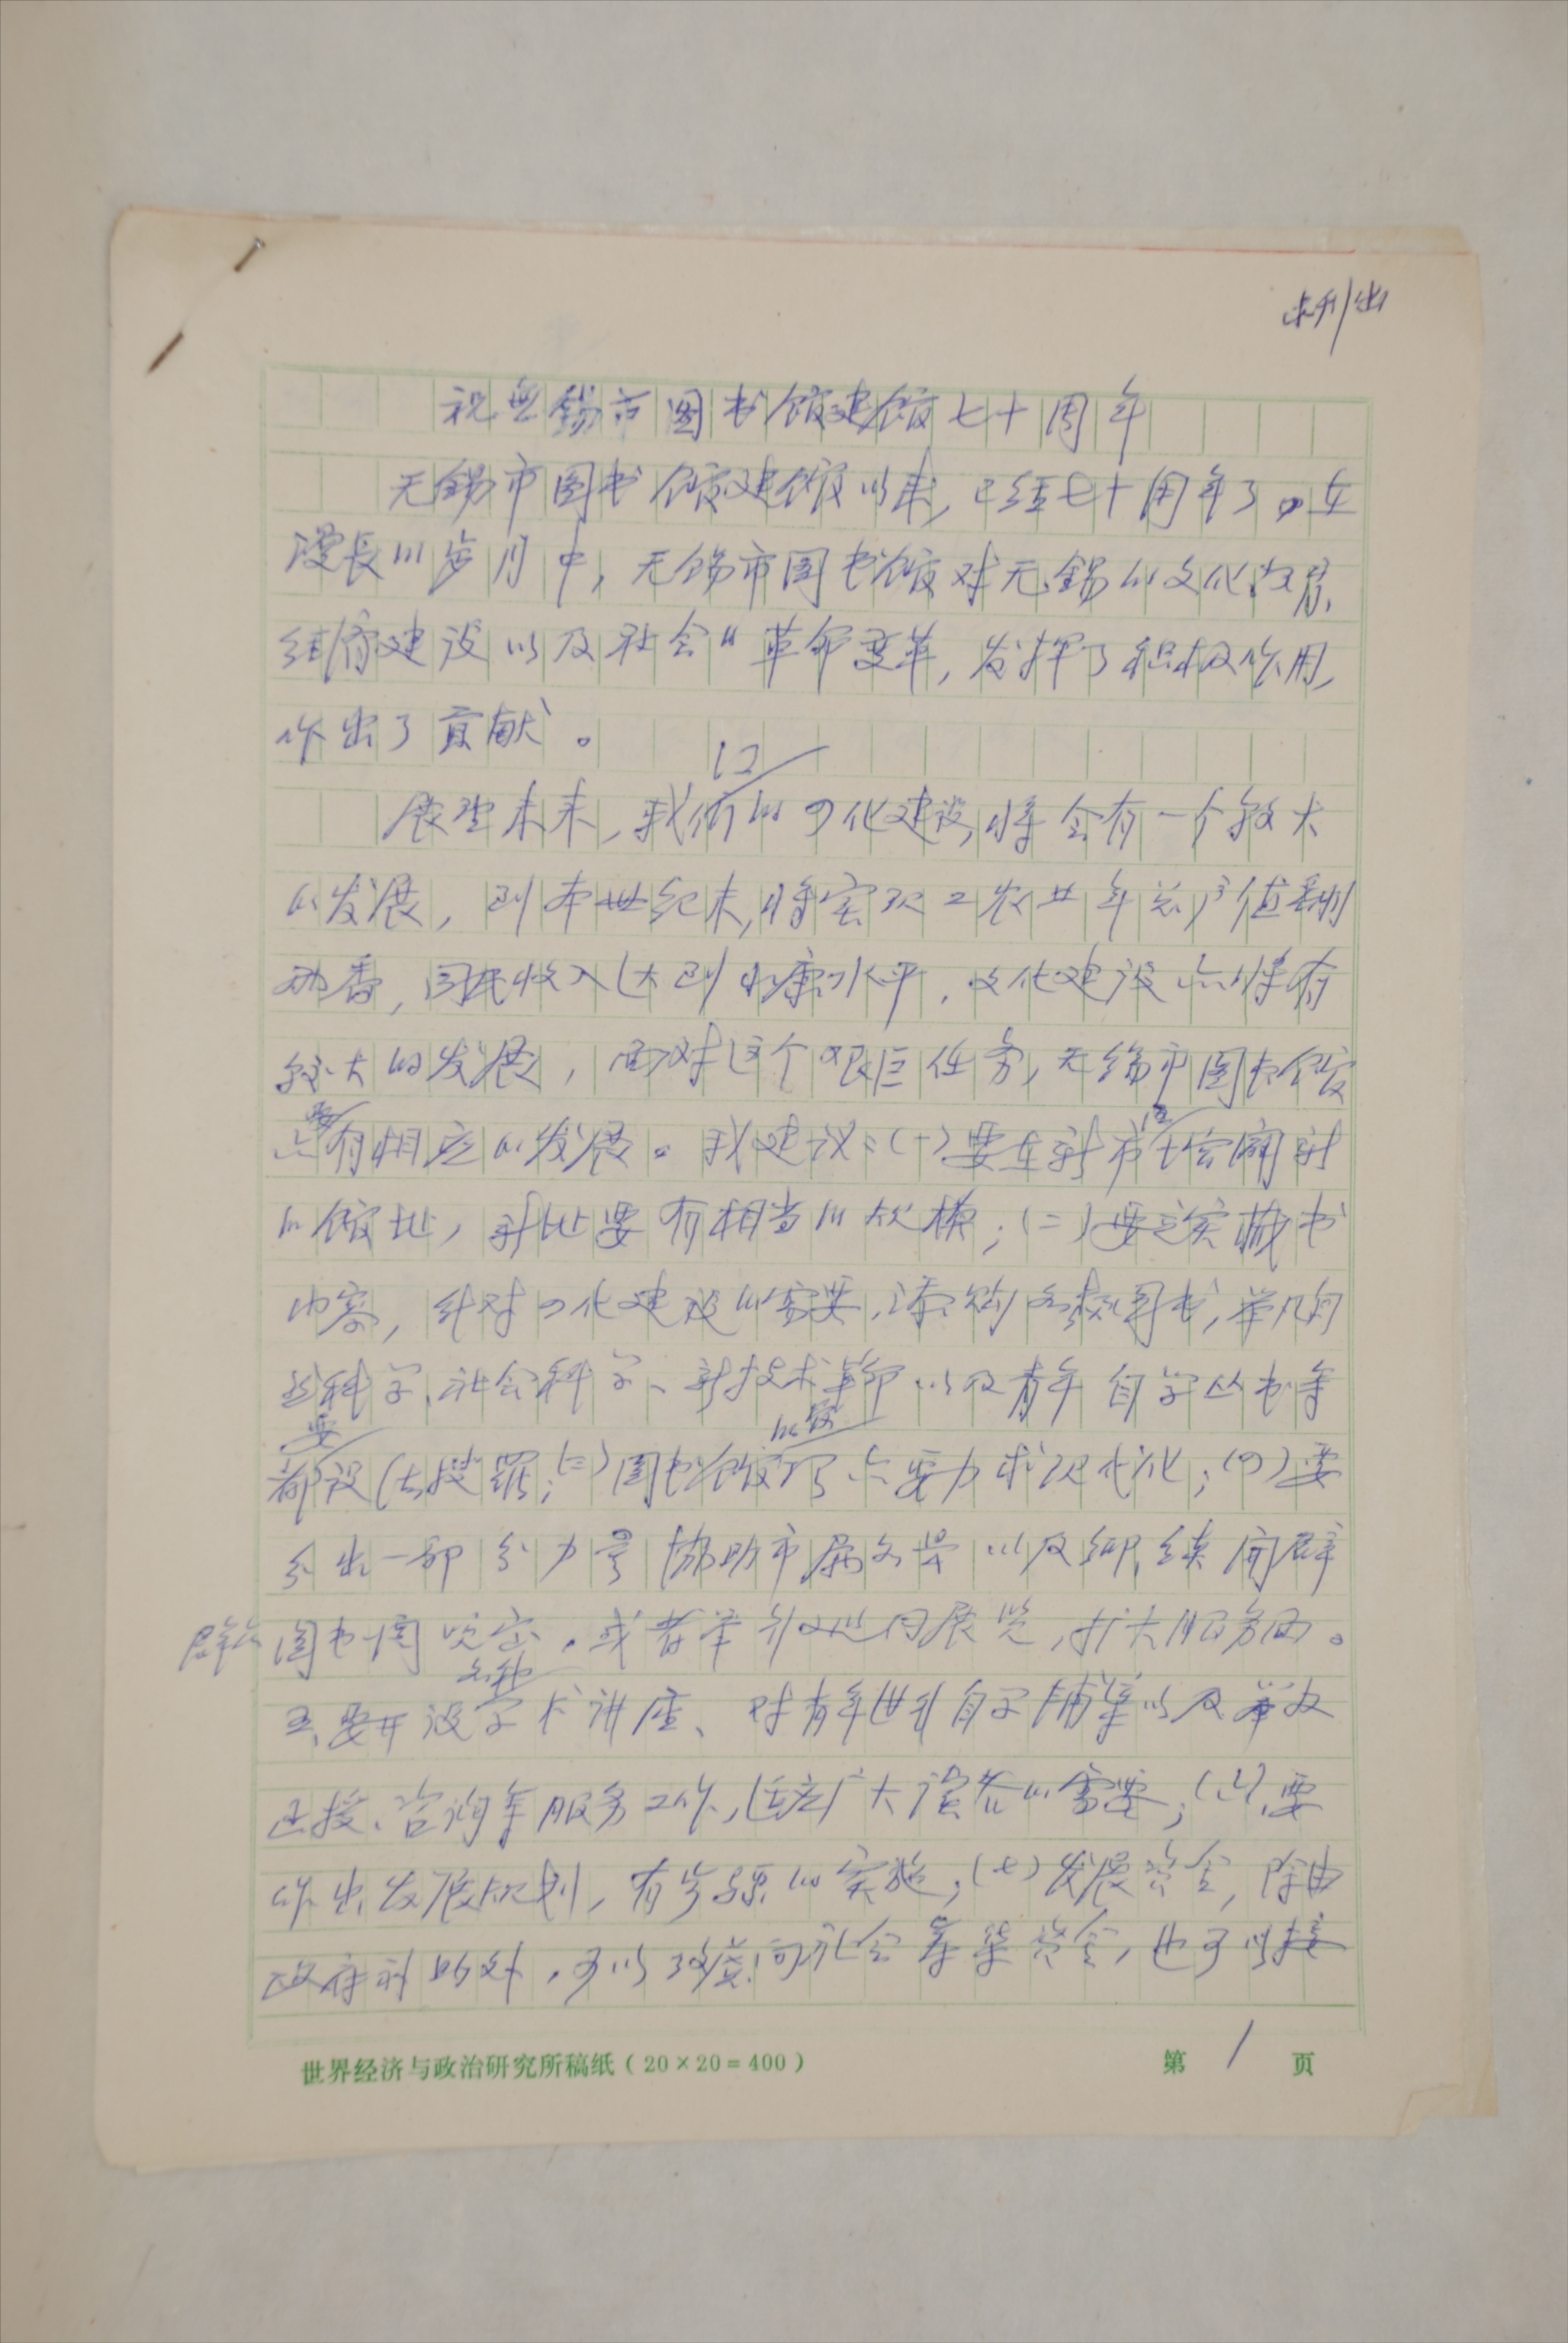 未刊出
祝無锡市图书馆建馆七十周年
无锡市图书馆建馆以来，已经七十周年了。在
漫長的岁月中，无锡市图书馆对无锡的文化发展、
经济建设以及社会的革命变革，发挥了积极作用，
作出了贡献。
展望未来，我们的四化建设，将会有一个较大
的发展，到本世纪末，将实现工农业年总产值翻
两番，国民收入达到小康水平，文化建设亦将有
较大的发展，面对这个艰巨任务，无锡市图书馆
要
亦有相应的发展。我建议：(一)要在新市区开辟新
的馆址，新址要有相当的规模；(二)要充实藏书
内容，针对四化建设的需要，添购各类图书，举凡自
然科学、社会科学、新技术革命以及青年自学丛书等
要 设备
都设法搜罗；(三)图书馆的亦要力求现代化；(四)要
分出一部分力量协助市属各县以及乡、镇开辟
群众图书阅览室。或者举办巡回展览，扩大服务面。
各种
五、要开设学术讲座、对青年进行自学辅导以及
函授、咨询等服务工作，适应广大读者的需要；(六)、要
作出发展规划，有步骤的实施；(七)发展资金，除由
政府补助外，可以向社会募集资金，也可以接
世界经济与政治研究所稿纸（20×20=400）
第 1 页